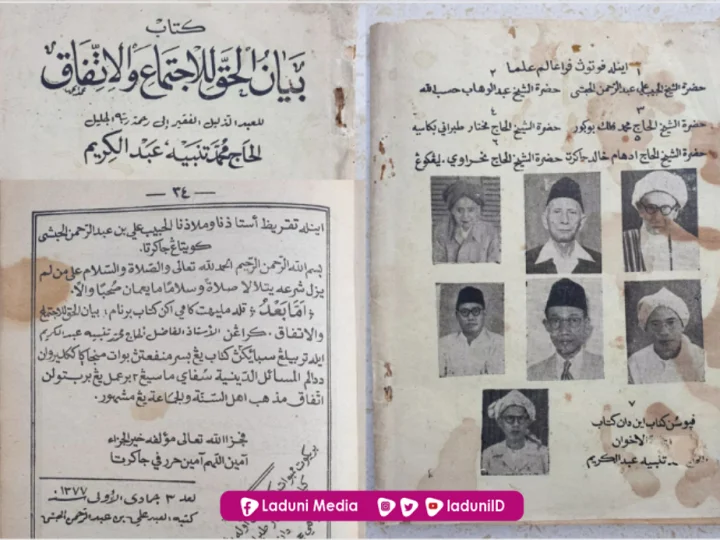 كتاب
بيان الحق للاجتماع والاتفاق
للعبد الذليل الفقير إلى رحمة ربه الجليل
الحاج محمد تنبيه عبد الكريم
— ٣٤ —
اينله تقريظ أستاذنا وملاذنا الحبيب علي بن عبد الرحمن الحبشي
كويتاڠ جاكرتا.
بسم الله الرحمن الرحيم الحمد لله تعالى والصلاة والسلام على من لم
يزل شرعه يتلالا صلاة وسلاما مايمان صحبا والا.
﴿ اما بعد ﴾ قد مليهت كامي اكن كتاب برنام: بيان الحق للاجتماع
والاتفاق. كراڠن الاستاذ الفاضل الحاج محمد تنبيه عبد الكريم
ايله تربيلڠ سباݢي كتاب يڠ بسر منفعتڽ بوات منجاݢ ككليروان
دالم المسائل الدينية سفاي ماسيڠ٢ برعمل يڠ بربتولن
اتفاق مذهب اهل السنة والجماعة يڠ مشهور.
فجزا الله تعالى مؤلفه خير الجزاء
آمين اللهم آمين حرر في جاكرتا
لعد ٣ جمادى الأولى سنة ١٣٧٧
كتبه العبد علي بن عبد الرحمن الحبشي
اينله فوتوڽ فرا عالم علما
١ ٢
حضرة الشيخ الحبيب علي عبد الرحمن الحبشي حضرة الشيخ عبد الوهاب حسب الله
٣ ٤
حضرة الشيخ الحاج محمد بوكور حضرة الشيخ الحاج مختار طبراني بكاسيه
٥ ٦
حضرة الشيخ الحاج ادهام خالد جاكرتا حضرة الشيخ الحاج نحراوي
٧
فپوسن كتاب اين دان كتاب
الاخوان
تنبيه عبد الكريم
Laduni Media
laduniID